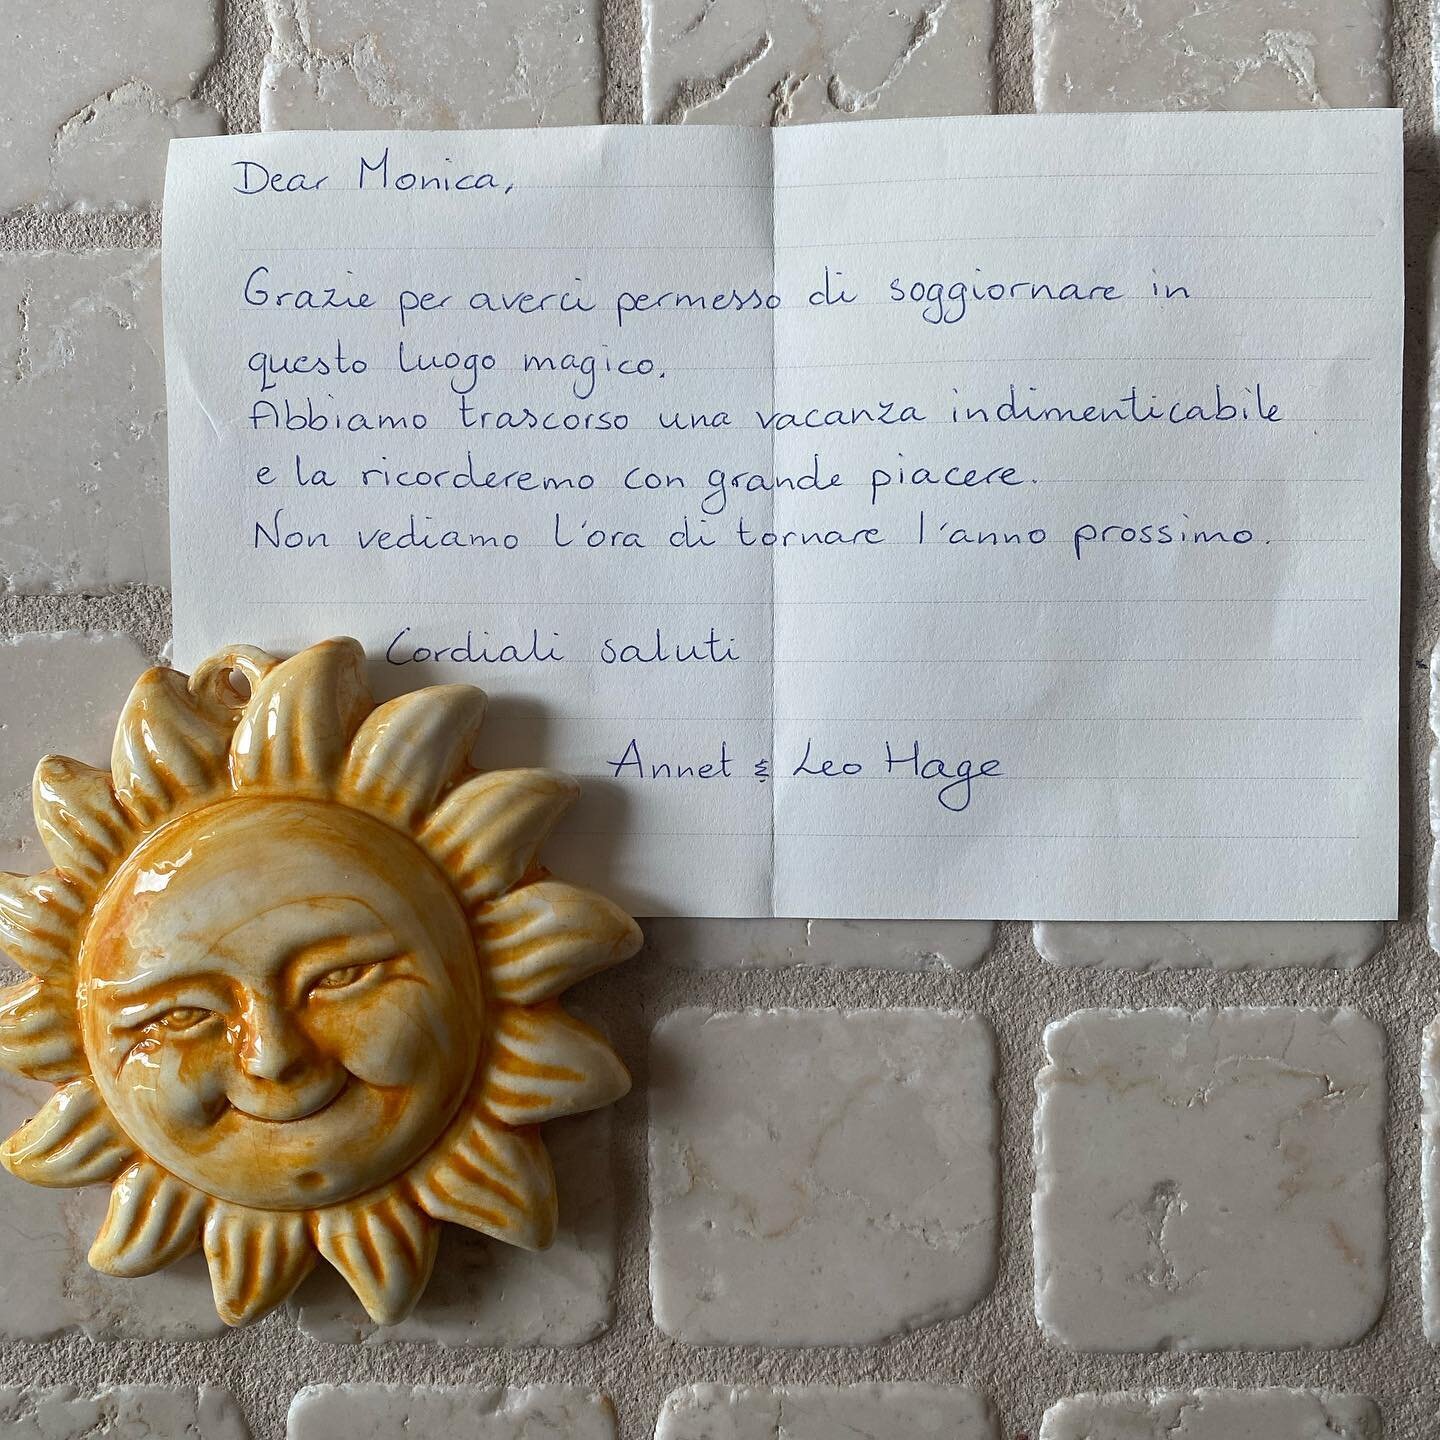 Dear Monica,
Grazie per averci permesso di soggiornare in
questo luogo magico.
Abbiamo trascorso una vacanza indimenticabile
e la ricorderemo con grande piacere.
Non vediamo l'ora di tornare l'anno prossimo.
Cordiali saluti
Annet & Leo Hage